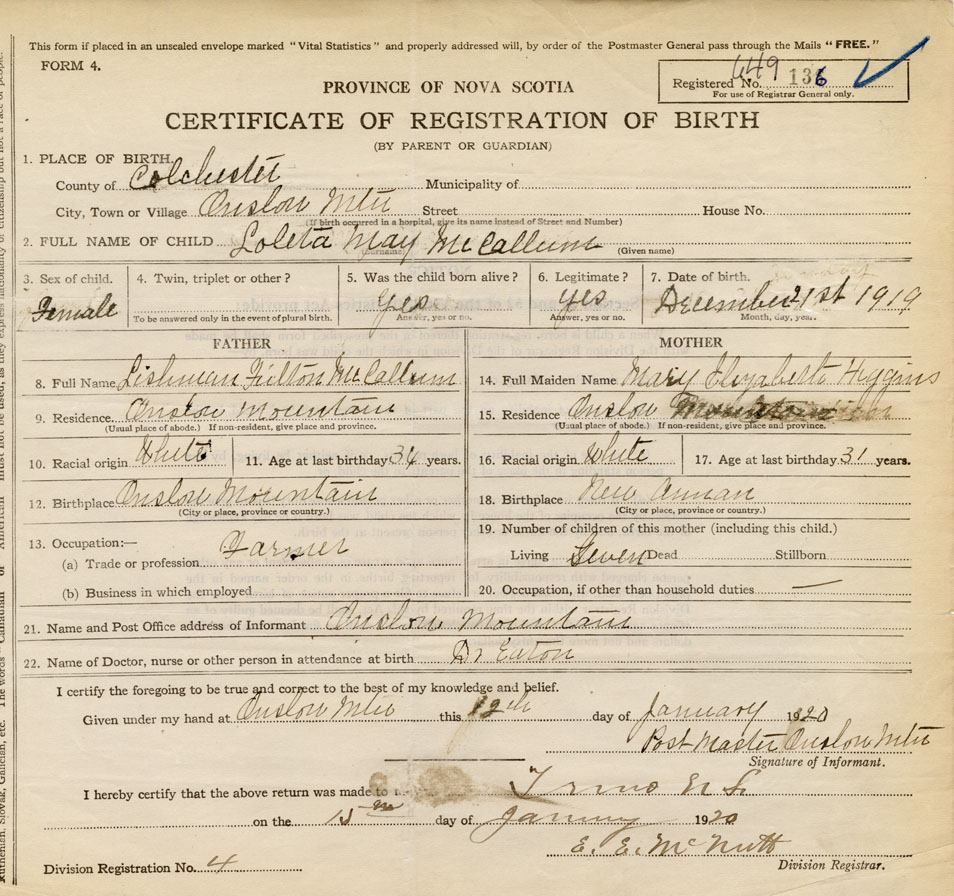 This form if placed in an unsealed envelope marked "Vital Statistics" and properly addressed will, by order of the Postmaster General pass through the Mails "FREE."
FORM 4.
649
Registered No. 136
For use of Registrar General only.
PROVINCE OF NOVA SCOTIA
CERTIFICATE OF REGISTRATION OF BIRTH
(BY PARENT OR GUARDIAN)
1. PLACE OF BIRTH.
County of Colchester Municipality of
City, Town or Village Onslow Mtn Street House No.
(If birth occurred in a hospital, give its name instead of Street and Number)
2. FULL NAME OF CHILD Loleta May McCallum
(Surname) (Given name)
3. Sex of child. 4. Twin, triplet or other? 5. Was the child born alive? 6. Legitimate? 7. Date of birth.
Female Yes Yes December 21st 1919
To be answered only in the event of plural birth. Answer, yes or no. Answer, yes or no. Month, day, year.
FATHER MOTHER
8. Full Name Lishman Fulton McCallum 14. Full Maiden Name Mary Elizabeth Higgins
9. Residence Onslow Mountain 15. Residence Onslow Mountain
(Usual place of abode.) If non-resident, give place and province. (Usual place of abode.) If non-resident, give place and province.
10. Racial origin White 11. Age at last birthday 34 years. 16. Racial origin White 17. Age at last birthday 31 years.
12. Birthplace Onslow Mountain 18. Birthplace New Annan
(City or place, province or country.) (City or place, province or country.)
13. Occupation:— Farmer 19. Number of children of this mother (including this child.)
(a) Trade or profession Living Seven Dead Stillborn
(b) Business in which employed 20. Occupation, if other than household duties —
21. Name and Post Office address of Informant Onslow Mountain
22. Name of Doctor, nurse or other person in attendance at birth Dr Eaton
I certify the foregoing to be true and correct to the best of my knowledge and belief.
Given under my hand at Onslow Mtn this 12th day of January 1920
Post Master Onslow Mtn
Signature of Informant.
I hereby certify that the above return was made to Truro N S.
on the 15th day of January 1920
E. E. McNutt
Division Registration No. 4 Division Registrar.